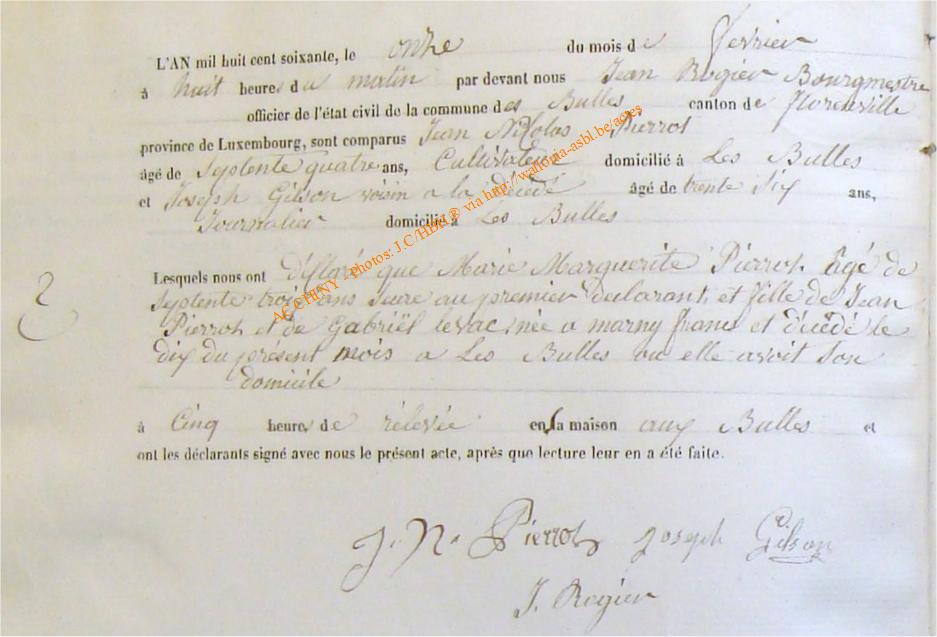 L'AN mil huit cent soixante, le onze du mois de fevrier
à huit heures du matin par devant nous Jean Rogier Bourgmestre
officier de l'état civil de la commune des Bulles canton de florenville
province de Luxembourg, sont comparus Jean Nicolas Pierrot
âgé de Septente quatre ans, Cultivateur domicilié à Les Bulles
et Joseph Gilson voisin a la décédé âgé de trente Six ans,
Journalier domicilié à Les Bulles
Lesquels nous ont déclaré que Marie Marguerite Pierrot âgé de
Septente trois ans Seure au premier declarant, et fille de Jean
Pierrot et de Gabriël levac née a marny france et décédé le
dix du présent mois a Les Bulles ou elle avoit Son
domicile
à Cinq heures de rélévée en la maison aux Bulles et
ont les déclarants signé avec nous le présent acte, après que lecture leur en a été faite.
J. N. Pierrot Joseph Gilson
J. Rogier
2
AC CHINY - Photos: J.C/HBH® via http://wallonia-asbl.be/actes